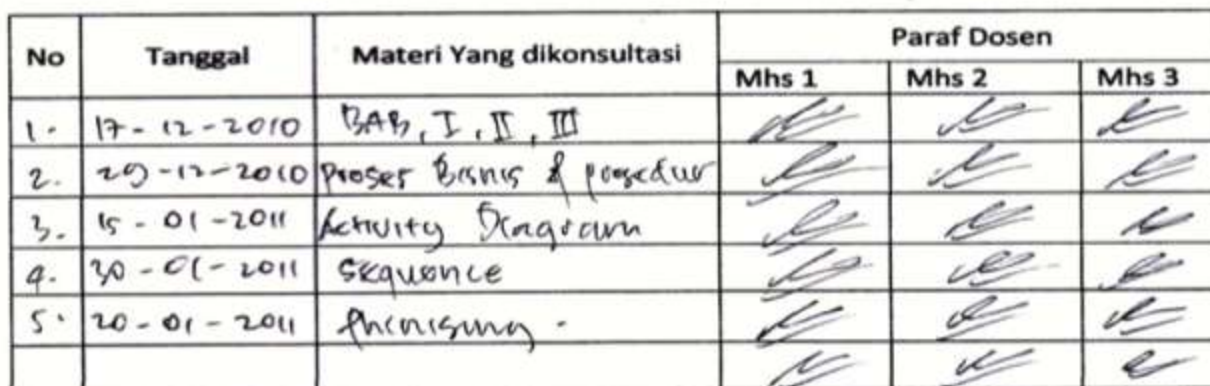 No Tanggal Materi Yang dikonsultasi Paraf Dosen
Mhs 1 Mhs 2 Mhs 3
1. 17-12-2010 BAB, I, II, III
2. 29-12-2010 Proses Bisnis & prosedur
3. 15-01-2011 Activity Diagram
4. 30-01-2011 Sequence
5. 20-01-2011